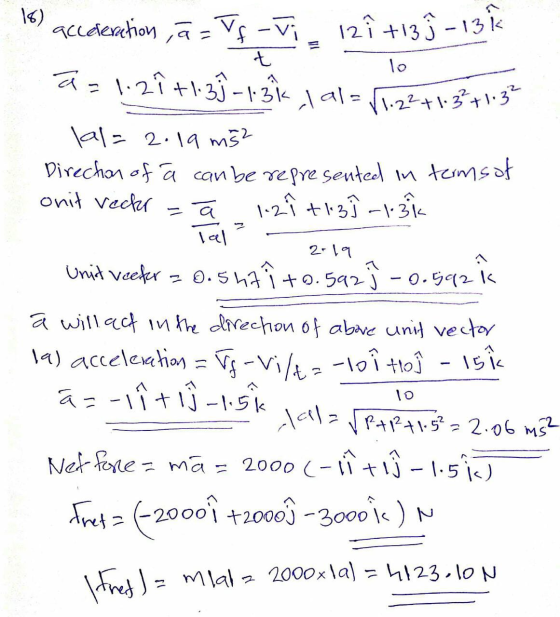 18) acceleration, a̅ = V̅f - V̅i / t = 12î + 13ĵ - 13k̂ / 10
a̅ = 1.2î + 1.3ĵ - 1.3k̂, |a| = √1.2² + 1.3² + 1.3²
|a| = 2.19 ms⁻²
Direction of a̅ can be represented in terms of
unit vector = a̅ / |a| = 1.2î + 1.3ĵ - 1.3k̂ / 2.19
Unit vector = 0.547î + 0.592ĵ - 0.592k̂
a̅ will act in the direction of above unit vector
19) acceleration = V̅f - Vi/t = -10î + 10ĵ - 15k̂ / 10
a̅ = -1î + 1ĵ - 1.5k̂, |a| = √1² + 1² + 1.5² = 2.06 ms⁻²
Net force = ma̅ = 2000 (-1î + 1ĵ - 1.5k̂)
Fnet = (-2000î + 2000ĵ - 3000k̂) N
|Fnet| = m|a| = 2000 × |a| = 4123.10 N